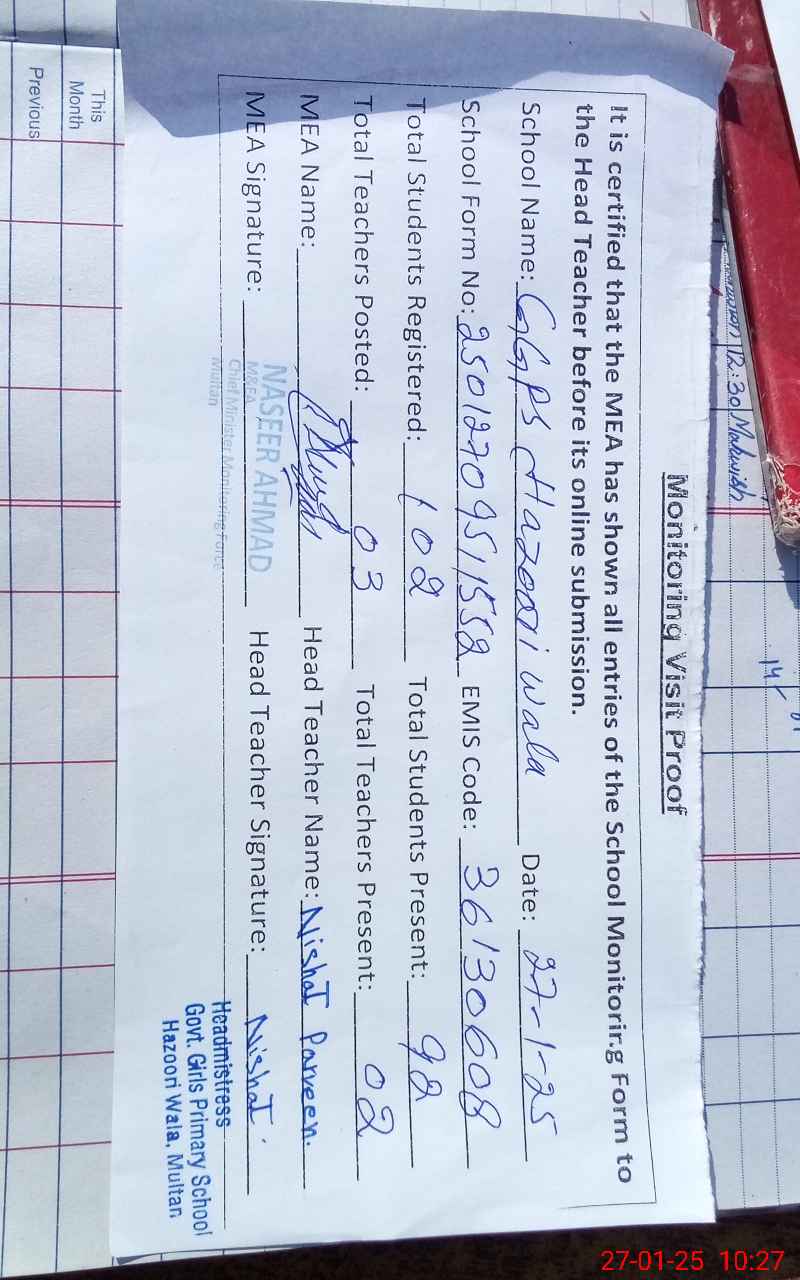 Monitoring Visit Proof
It is certified that the MEA has shown all entries of the School Monitoring Form to
the Head Teacher before its online submission.
School Name: GGPS Hazoori Wala Date: 27-1-25
School Form No: 2501270951152 EMIS Code: 36130608
Total Students Registered: 102 Total Students Present: 92
Total Teachers Posted: 03 Total Teachers Present: 02
MEA Name: Head Teacher Name: Nishat Parveen.
MEA Signature: Head Teacher Signature: Nishat.
NASEER AHMAD
M&EA
Chief Minister Monitoring Force
Multan
Headmistress
Govt. Girls Primary School
Hazoori Wala, Multan
This
Month
Previous
12:30
14/
27-01-25 10:27